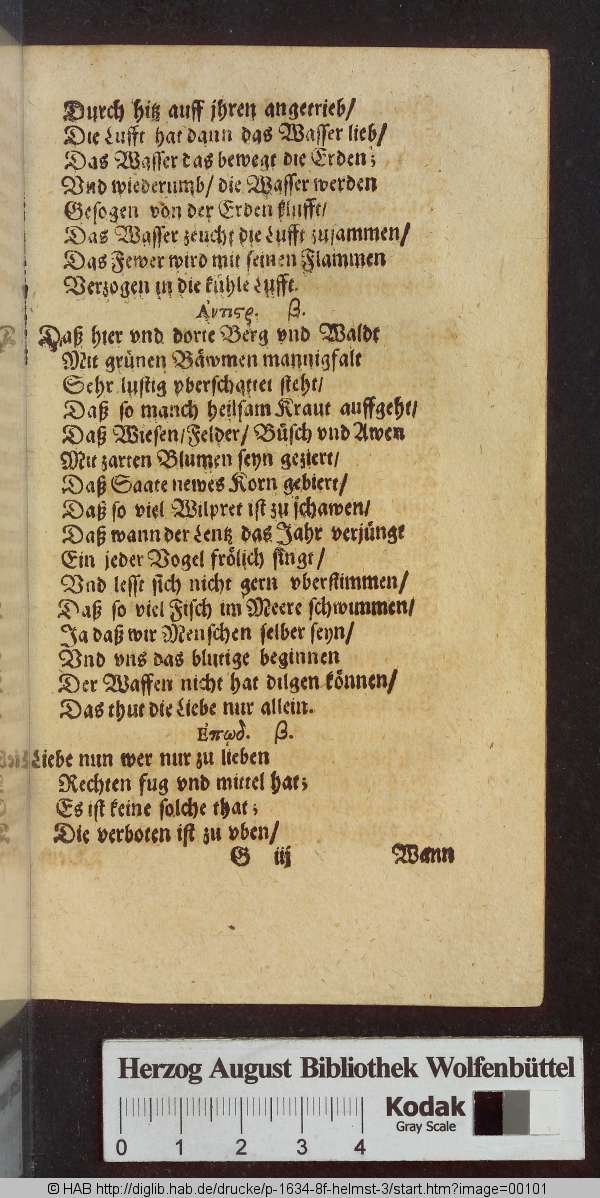 Durch hitz auff jhren angetrieb/
Die Lufft hat dann das Wasser lieb/
Das Wasser das bewegt die Erden;
Vnd wiederumb/ die Wasser werden
Gesogen von der Erden klufft/
Das Wasser zeucht die Lufft zusammen/
Das Fewer wird mit seinen Flammen
Verzogen in die kühle Lufft.
Αντιςρ. β.
Daß hier vnd dorte Berg vnd Waldt
Mit grünen Bäwmen mannigfalt
Sehr lustig vberschattet steht/
Daß so manch heilsam Kraut auffgeht/
Daß Wiesen/Felder/ Büsch vnd Awen
Mit zarten Blumen seyn geziert/
Daß Saate newes Korn gebiert/
Daß so viel Wilpret ist zu schawen/
Daß wann der Lentz das Jahr verjüngt
Ein jeder Vogel frölich singt/
Vnd lesst sich nicht gern vberstimmen/
Daß so viel Fisch im Meere schwimmen/
Ja daß wir Menschen selber seyn/
Vnd vns das blutige beginnen
Der Waffen nicht hat dilgen können/
Das thut die Liebe nur allein.
Επωδ. β.
Liebe nun wer nur zu lieben
Rechten fug vnd mittel hat;
Es ist keine solche that;
Die verboten ist zu vben/
G iij Wann
Herzog August Bibliothek Wolfenbüttel
Kodak
Gray Scale
0 1 2 3 4
© HAB http://diglib.hab.de/drucke/p-1634-8f-helmst-3/start.htm?image=00101